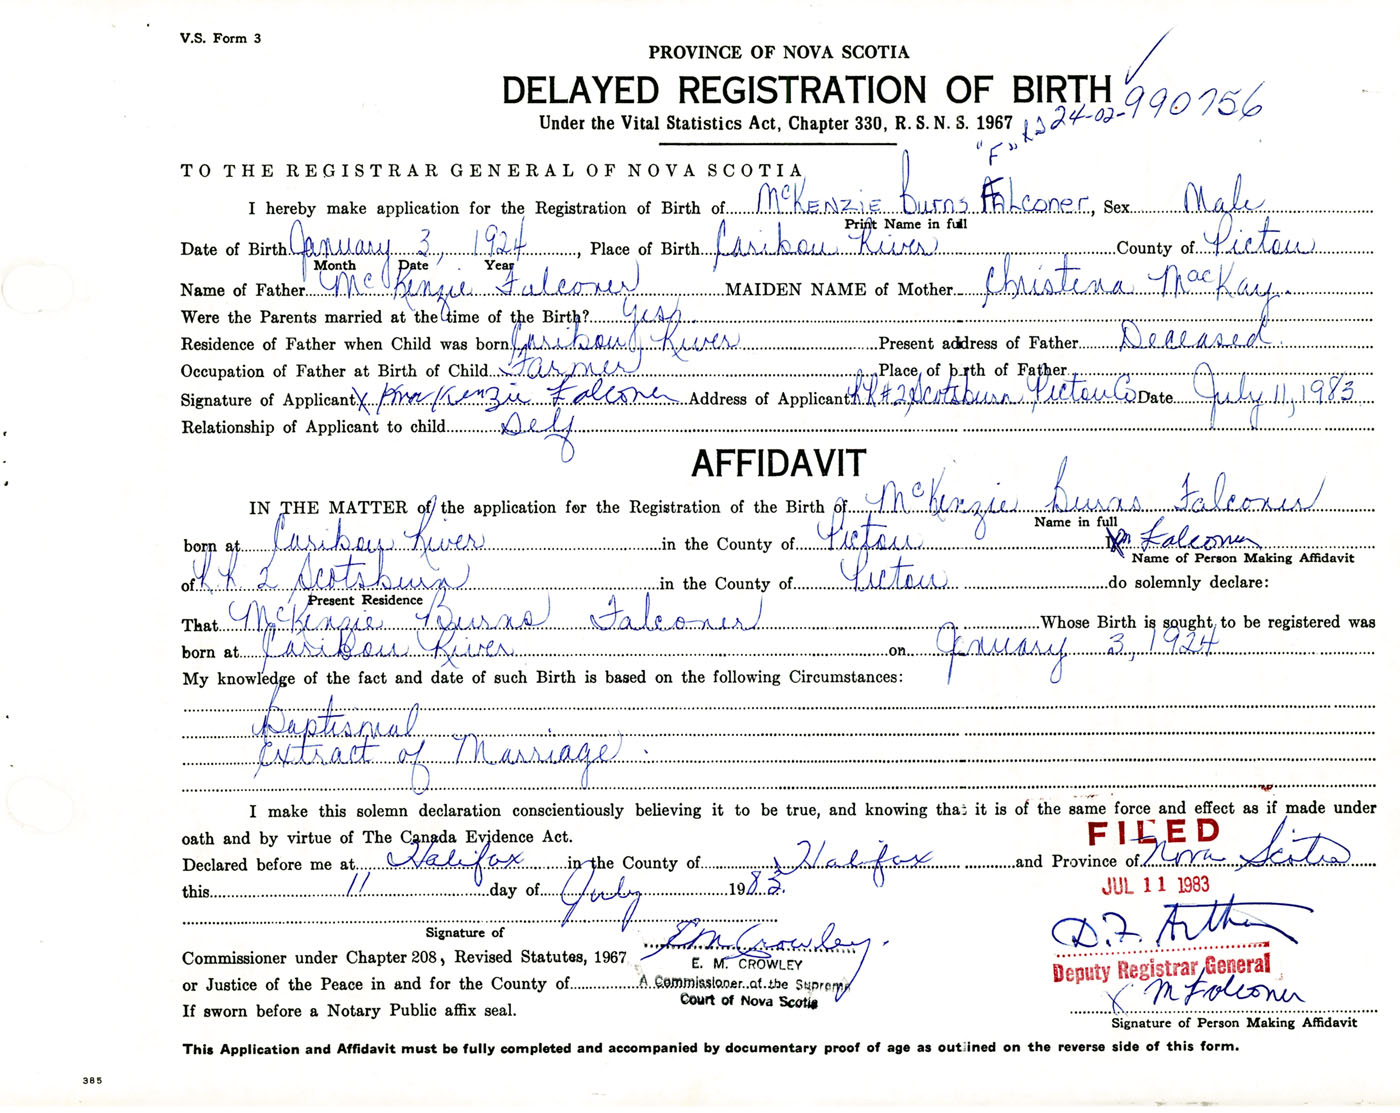 V.S. Form 3
PROVINCE OF NOVA SCOTIA
DELAYED REGISTRATION OF BIRTH
24-02-990756
Under the Vital Statistics Act, Chapter 330, R.S.N.S. 1967
"F"
TO THE REGISTRAR GENERAL OF NOVA SCOTIA
I hereby make application for the Registration of Birth of McKENZIE Burns FALCONER, Sex Male
Print Name in full
Date of Birth January 3, 1924, Place of Birth Caribou River County of Pictou
Month Date Year
Name of Father McKenzie Falconer MAIDEN NAME of Mother Christena MacKay
Were the Parents married at the time of the Birth? Yes
Residence of Father when Child was born Caribou River Present address of Father Deceased
Occupation of Father at Birth of Child Farmer Place of birth of Father
Signature of Applicant X MacKenzie Falconer Address of Applicant RR#2 Scotsburn Pictou Co Date July 11, 1983
Relationship of Applicant to child Self
AFFIDAVIT
IN THE MATTER of the application for the Registration of the Birth of McKenzie Burns Falconer
Name in full
born at Caribou River in the County of Pictou I, M Falconer
Name of Person Making Affidavit
of RR 2 Scotsburn in the County of Pictou do solemnly declare:
Present Residence
That McKenzie Burns Falconer Whose Birth is sought to be registered was
born at Caribou River on January 3, 1924
My knowledge of the fact and date of such Birth is based on the following Circumstances:
Baptismal
Extract of Marriage.
I make this solemn declaration conscientiously believing it to be true, and knowing that it is of the same force and effect as if made under
oath and by virtue of The Canada Evidence Act.
FILED
Declared before me at Halifax in the County of Halifax and Province of Nova Scotia
this 11 day of July 1983.
JUL 11 1983
Signature of
E M Crowley.
D.F. Arthur
Commissioner under Chapter 208, Revised Statutes, 1967
E. M. CROWLEY
Deputy Registrar General
or Justice of the Peace in and for the County of
A Commissioner of the Supreme
Court of Nova Scotia
X M Falconer
If sworn before a Notary Public affix seal.
Signature of Person Making Affidavit
This Application and Affidavit must be fully completed and accompanied by documentary proof of age as outlined on the reverse side of this form.
385